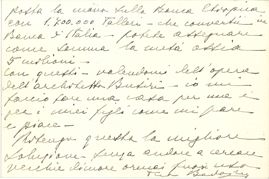 posta la mano sulla Banca Etiopica
con 1.800.000 Talleri - che convertiti in
Banca d'Italia - potete assegnare
come somma la metà ossia
5 milioni -
Con questi - valendomi dell'opera
dell'architetto Busiri - io mi
faccio fare una casa per me e
per i miei figli come mi pare
e piace -
Ritengo questa la migliore
soluzione - senza andare a cercare
vecchie dimore ormai fuori uso